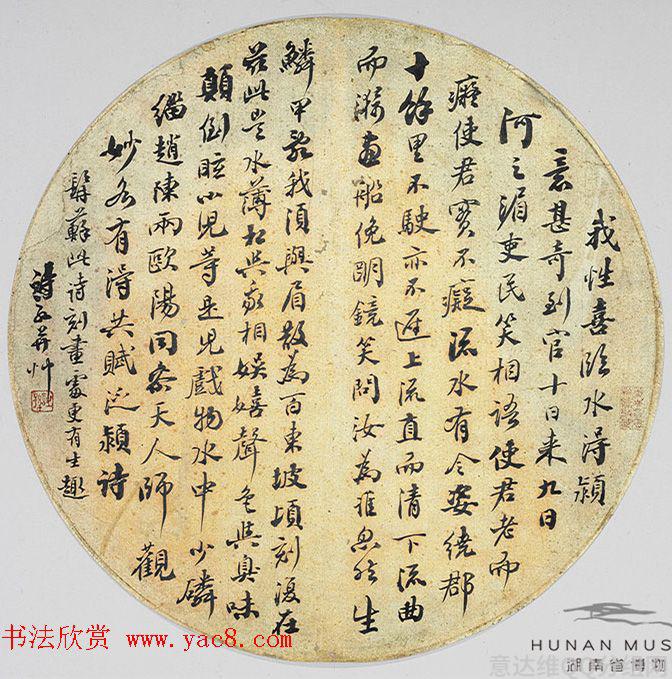 我性喜臨水得潁
意甚奇到官十日来九日
河之湄吏民笑相語使君老而
癡使君實不癡流水有令姿繞郡
十餘里不駛亦不遲上流直而清下流曲
而漪畫船俛明鏡笑問汝為誰忽然生
鱗甲亂我須與眉散為百東坡頃刻復在
茲此豈水薄相與我相娛嬉聲色與臭味
顛倒眩小兒等是兒戲物水中少磷
緇趙陳兩歐陽同參天人師觀
妙各有得共賦泛潁詩
髯蘇此詩刻畫處更有生趣
书法欣赏 www.yac8.com
HUNAN MUS
湖南省博物